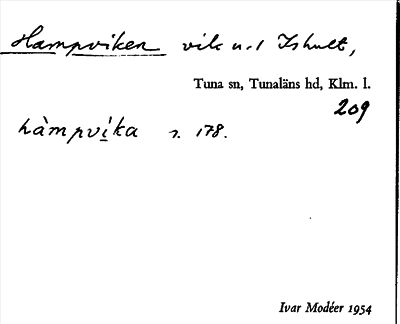 Hampviken vik u. l Ishult,
Tuna sn, Tunaläns hd, Klm. l.
209
hàmpvi̲ka s. 178.
Ivar Modéer 1954